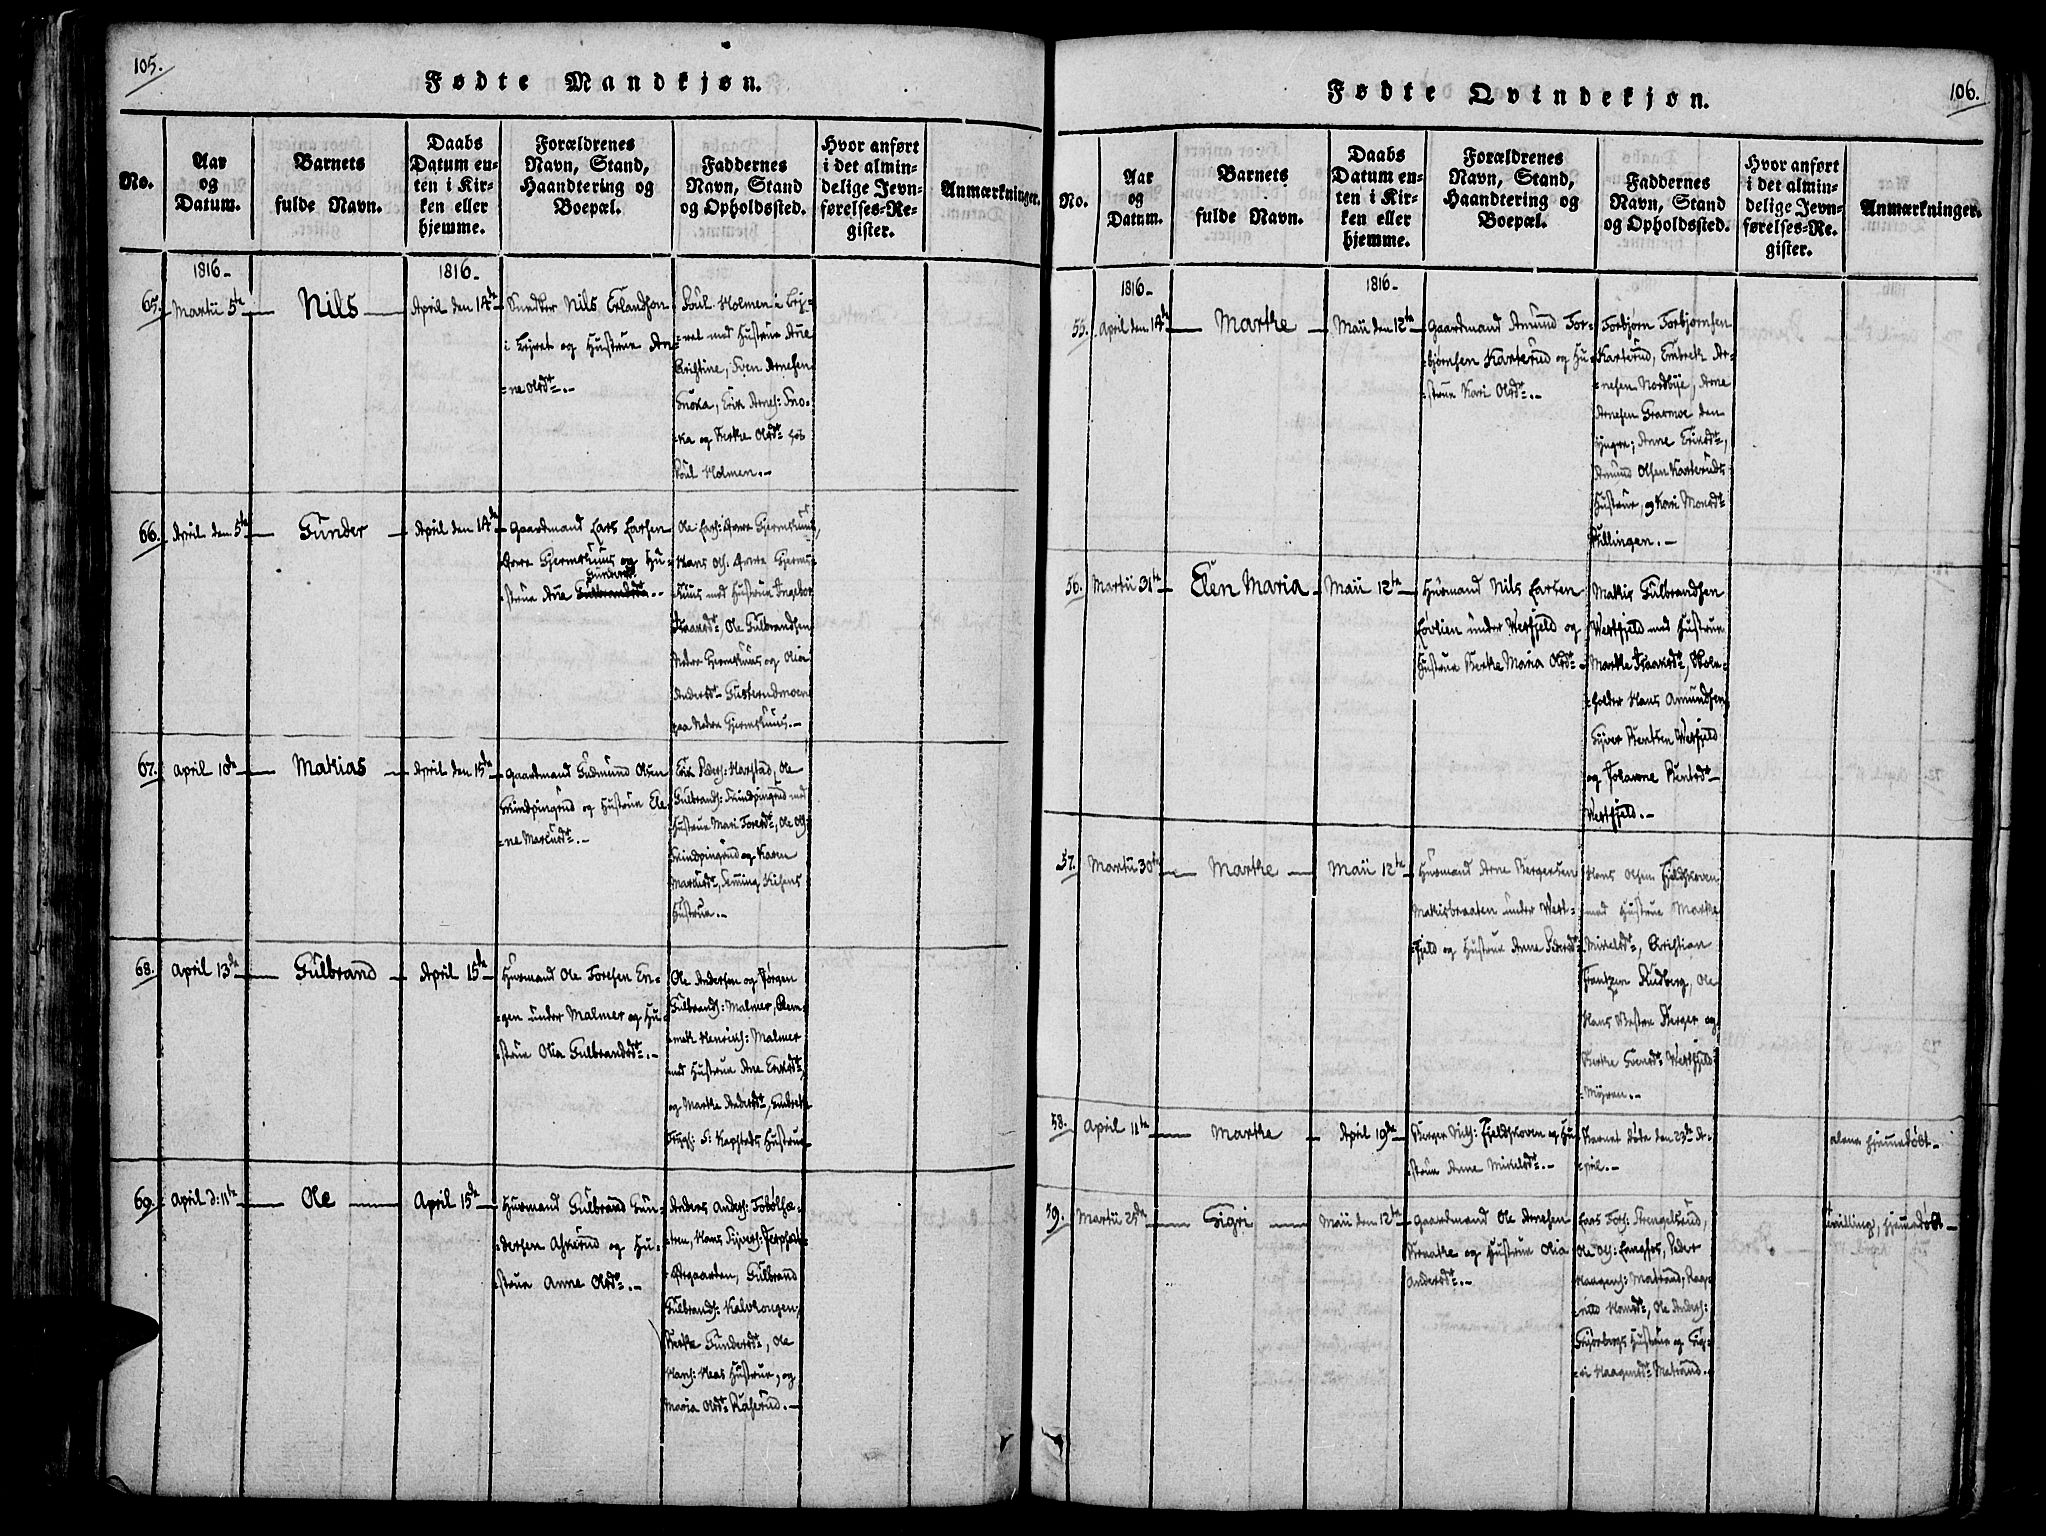 105.
Fødte Mandkjøn.
No.
Aar
og
Datum.
Barnets
fulde Navn.
Daabs
Datum en-
ten i Kir-
ken eller
hjemme.
Forældrenes
Navn, Stand,
Haandtering og
Boepæl.
Faddernes
Navn, Stand
og Opholdssted.
Hvor anført
i det almin-
delige Jevn-
førelses-Re-
gister.
Anmærkninger.
1816
1816
65.
Martii 5te
Nils
April den 14de
Nils Erlandsen
i og Hustrue An-
=ne Olsdt.
Poul Holmen i
med Hustrue Ane
Kristine, Sven Arnesen
Snoka, Erik Arnes: Sno-
=ka og Berte Olsdt hos
Poul Holmen.
66.
April den 5te
Gunder
April den 14de
Gaardmand Lars Larsen
Øvre Gjermshuus og Hu-
Gundersdt
=strue Ane Gulbrandsdt.
Ole Lars: Øvre Gjermshuus,
Hans Ols: Øvre Gjerms-
=huus med Hustrue Ingebor
Isaaksdt, Ole Gulbrandsen
Nedre Gjermshuus og Olia
Andersdt Gusterudmoen
paa Nedre Gjermshuus.
67.
April 10de
Mathias
April den 15de
Gaardmand Gudmund Olsen
Skindpingrud og Hustrue Ele-
=ne Marcusdt.
Erik Peders: Harstad, Ole
Gulbrands: Skindpingrud med
Hustrue Mari Toresdt, Ole Ols:
Skindpingrud og Karen
Marcusdt, Hemming Kihens
Hustrue.
68.
April 13de
Gulbrand
April 15de
Huusmand Ole Toresen En-
=gen under Malmer og Hu-
=strue Olia Gulbrandsdt.
Ole Andersen og Jørgen
Gulbrands: Malmer, Clem-
=met Henrichs: Malmer
med Hustrue Ane Eriksdt,
og Marthe Andersdt, Embreth
Trygs: S: Kapstads Hustrue
69.
April d: 11te
Ole
April 15de
Huusmand Gulbrand Gun-
=dersen Askerud og Hu-
=strue Anne Olsdt.
Anders Anders: Tobøls-
=tren, Hans Syvers:
Ørgaarden, Gulbrand
Gulbrands: Kalvhougen,
Berthe Gundersdt, Ole
Hans: Hustrue, og
Maria Olsdt Raaserud.
106.
Fødte Qvindekjøn.
No.
Aar
og
Datum.
Barnets
fulde Navn.
Daabs
Datum en-
ten i Kir-
ken eller
hjemme.
Forældrenes
Navn, Stand,
Haandtering og
Boepæl.
Faddernes
Navn, Stand
og Opholdssted.
Hvor anført
i det almin-
delige Jevn-
førelses-Re-
gister.
Anmærkninger.
1816
1816
55.
April den 14de
Marthe
Maii den 12te
Gaardmand Amund Tor-
=bjørnsen Karterud og Hu-
=strue Kari Olsdt.
Torbjørn Torbjørnsen
Karterud, Embreth Ar-
=nesen Nordbye, Arne
Arnesen Gravmoe den
yngre, Anne Eriksdt,
Amund Olsen Karteruds
Hustrue, og Kari Monsdt
Villingen.
56.
Martii 31te
Elen Maria
Maii 12te
Huusmand Nils Larsen
Løvlien under Westfjeld og
Hustrue Berthe Maria Olsdt
Mathis Gulbrandsen
Westfjeld med Hustrue
Marthe Isaaksdt, Skole-
=holder Hans Amundsen,
Syver Bentsen Westfjeld
og Johanne Bentsdt
Westfjeld.
57.
Martii 30te
Marthe
Maii 12te
Huusmand Arne Bergersen
Mathisbraaten under West-
=fjeld og Hustrue Anne Pedersdt
Hans Olsen Fjeldskoven
med Hustrue Marthe
Mikelsdt, Christian
Frantzen Rudberg, Ole
Hans Berger og
Berthe Svensdt Westfjeld-
=Myren.
58.
April 11te
Marthe
April 19de
Berger Nils: Fjeldskoven og Hu-
=strue Anne Mikelsdt.
Barnet døde den 23de A-
=pril.
alene hjemmedøbt
59.
Martii 25de
Sigri
Maii den 12te
Gaardmand Ole Arnesen
Braathe og Hustrue Olia
Andersdt.
Lars Tos: Strengelsrud,
Ole Ols: Langfos, Peder
Haagens: Matrand, Rag-
=nild Hansdt, Ole Anders:
Skjønbergs Hustrue og Sig-
=ri Haagensdt Matrand.
tvilling, hjemmedøbt